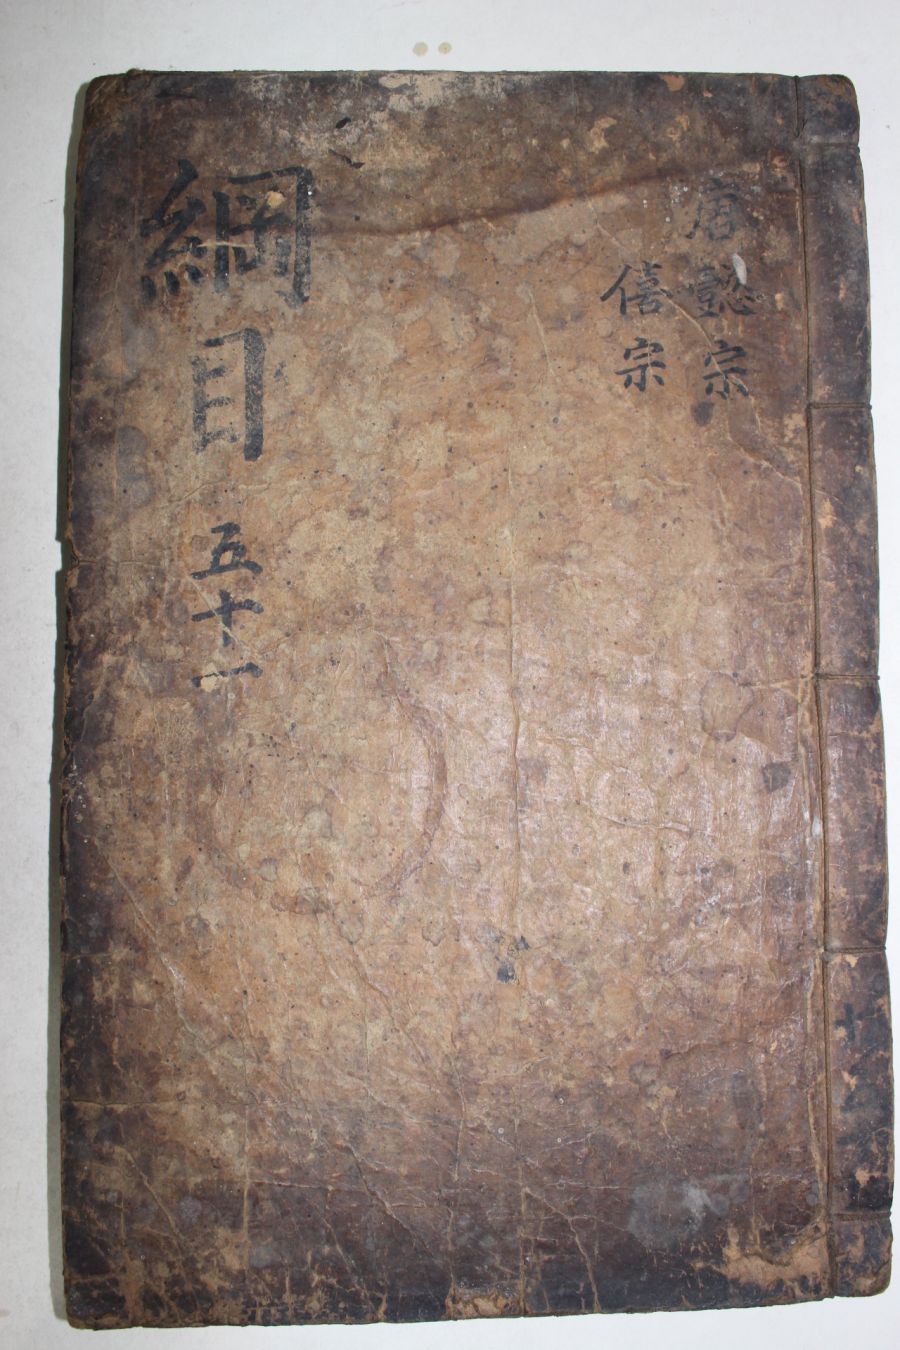 唐懿宗
僖宗
綱目 五十一